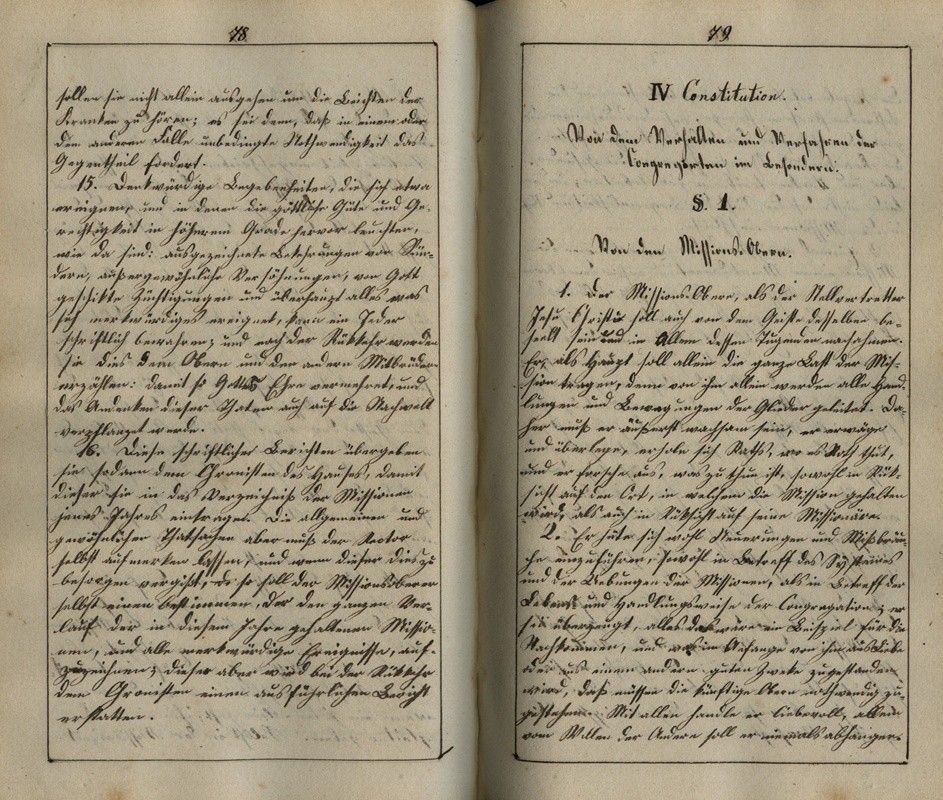 78.
sollen sie nicht allein ausgehen um die Beichten der
Kranken zu hören; es sei denn, daß in einem oder
dem anderen Falle unbedingte Nothwendigkeit das
Gegentheil fordert.
15. Denkwürdige Begebenheiten, die sich etwa
ereignen, und in denen die göttliche Güte und Ge-
rechtigkeit in höherem Grade hervor leuchten,
wie da sind: ausgezeichnete Bekehrungen von Sün-
dern, außergewöhnliche Versöhnungen, von Gott
geschikte Züchtigungen und überhaupt alles was
sich merkwürdiges ereignet, kann ein Jeder
schriftlich bewahren; und nach der Rükkehr werden
sie dies dem Obern und den andern Mitbrüdern
erzählen: damit so Gottes Ehre vermehret, und
das Andenken dieser Thaten auch auf die Nachwelt
verpflanzet werde.
16. Diese schriftlichen Berichten übergeben
sie sodann dem Chronisten des Hauses, damit
dieser sie in das Verzeichniß der Missionen
jenes Jahres eintrage. Die allgemeinen und
gewöhnlichen Thatsachen aber muß der Rector
selbst aufmerken lassen, und wenn dieser dies zu
besorgen vergißt, so soll der Missionsoberer
selbst einen bestimmen, der den ganzen Ver-
lauf der in diesem Jahre gehaltenen Missio-
nen, und alle merkwürdige Ereignisse, auf-
zuzeichnen; dieser aber wird bei der Rükkehr
dem Chronisten einen ausführlichen Bericht
erstatten.
79.
IV Constitution.
Von dem Verhalten und Verfahren der
Congregirten im Besondern.
§. 1.
Von den Missions-Obern.
1. Der Missions-Obere, als der Stellvertretter
Jesu Christi soll auch von dem Geiste desselben be-
seelt sein und in Allem dessen Tugenden nachahmen.
Er, als Haupt soll allein die ganze Last der Mis-
sion tragen, denn von ihm allein werden alle Hand-
lungen und Bewegungen der Glieder geleitet. Da-
her muß er äußerst wachsam sein, er erwäge
und überlege, erhole sich Raths, wo es Noth thut,
und er forsche aus, was zu thun ist, sowohl in Rük-
sicht auf den Ort, in welchem die Mission gehalten
wird, als auch in Rüksicht auf seine Missionäre.
2. Er hüte sich wohl Neuerungen und Mißbräu-
che einzuführen, sowohl in Betreff des Systemes
und der Uebungen der Missionen, als in Betreff der
Lebens und Handlungsweise der Congregation; er
sei überzeugt, alles das wäre ein Beispiel für die
Nachkommen, und was im Anfange von ihm aus Liebe
oder aus einem andern guten Zweke zugestanden
wird, daß müssen die künftige Obern nothwendig zu-
gestehen. Mit allen handle er liebevoll, allein
vom Willen der Andere soll er niemals abhangen.